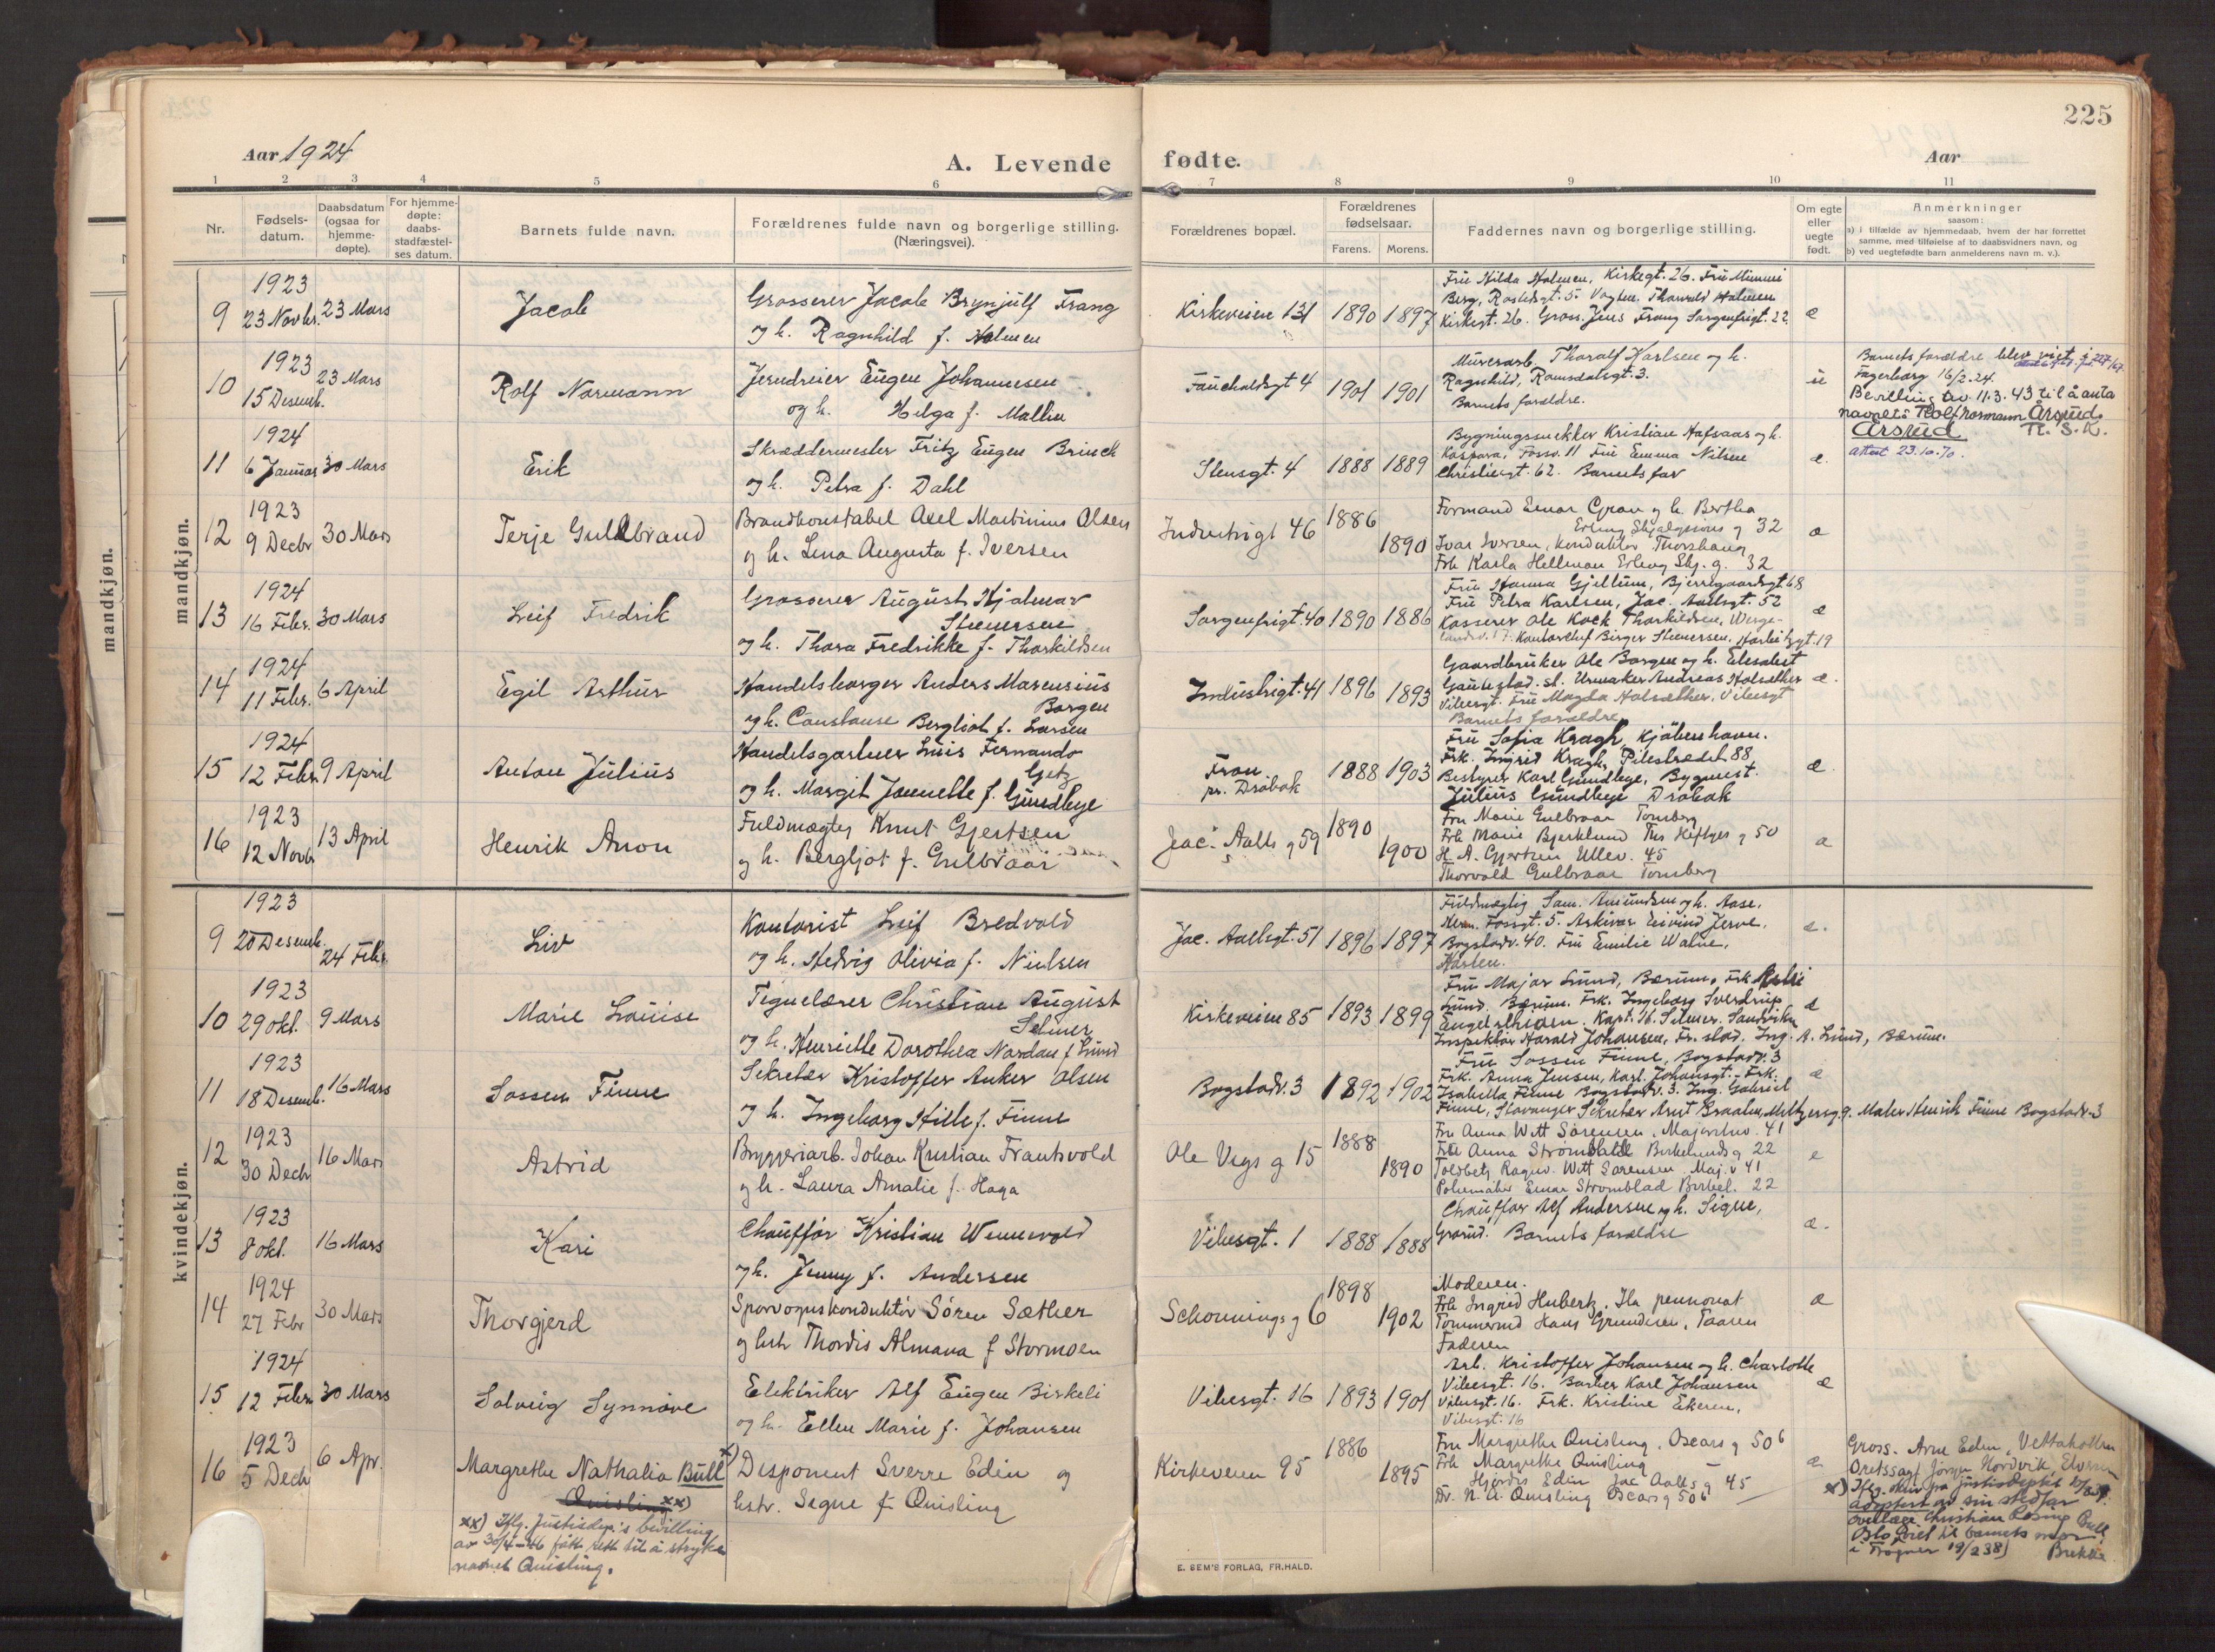 225
Aar 1924
A. Levende fødte.
Aar
1 2 3 4 5 6 7 8 9 10 11
Nr.
Fødsels-
datum.
Daabsdatum
(ogsaa for
hjemme-
døpte).
For hjemme-
døpte:
daabs-
stadfæstel-
ses datum.
Barnets fulde navn.
Forældrenes fulde navn og borgerlige stilling.
(Næringsvei).
Forældrenes bopæl.
Forældrenes
fødselsaar.
Farens. Morens.
Faddernes navn og borgerlige stilling.
Om egte
eller
uegte
født.
Anmerkninger
saasom:
a) i tilfælde av hjemmedaab, hvem der har forrettet
samme, med tilføielse af to daabsvidners navn, og
b) ved uegtefødte barn anmelderens navn m. v.).
mandkjøn.
mandkjøn.
9
1923
23 Novbr.
23 Mars
Jacob
Grosserer Jacob Brynjulf Frang
og h. Ragnhild f. Holmen
Kirkeveien 131
1890 1897
Fru Hilda Holmen, Kirkegt. 26. Fru Mimmi
Berg, Rosteds gt. 5. Vagtm. Thorvald Holmen
Kirkegt. 26. Gross. Jens Frang Sorgenfrigt. 22.
æ
10
1923
15 Desemb.
23 Mars
Rolf Normann
Jerndreier Eugen Johannesen
og h. Helga f. Mallin
Fauchaldsgt 4
1901 1901
Murerarb. Thoralf Karlsen og h.
Ragnhild, Romsdalsgt. 3.
Barnets forældre.
u
Barnets forældre blev viet i
Fagerborg 16/2.24.
Bevilling av 11.3.43 til å anta
navnet: Rolf Normann Årsrud.
Årsrud
attest 23.10.70.
11
1924
6 Januar
30 Mars
Erik
Skræddermester Fritz Eugen Brinck
og h. Petra f. Dahl
Stensgt. 4
1888 1889
Bygningssnekker Kristian Hafsaas og h.
Kaspara, Fossv. 11 Fru Emma Nilsen
Christiesgt. 62. Barnets far
e.
12
1923
9 Decbr
30 Mars
Terje Gulbrand
Brandkonstabel Axel Martinius Olsen
og h. Lina Augusta f. Iversen
Industrigt 46
1886 1890
Formand Einar Gran og h. Bertha
Erling Skjalgsons g 32
Ivar Iversen, Konduktør Thorshaug
Frk Karla Hellman Erling Skj. g. 32
æ
13
1924
16 Febr.
30 Mars
Leif Fredrik
Grosserer August Hjalmar
Stenersen
og h. Thora Fredrikke f. Thorkildsen
Sorgenfrigt. 40
1890 1886
Fru Hanna Gjellum, Bjerregaardsgt. 68
Fru Petra Karlsen, Jac. Aallsgt. 52
Kasserer Ole Kock Thorkildsen, Werge-
landsv. 17. Kontorchef Birger Stenersen, Harbitzgt. 19
æ
14
1924
11 Febr.
6 April
Egil Arthur
Handelsborger Anders Marensius
Borgen
og h. Constanse Bergliot f. Larsen
Industrigt. 41
1896 1893
Gaardbruker Ole Borgen og h. Elisabet
Gaustad. st. Urmaker Andreas Holsæther
Vibesgt. Fru Magda Holsæther, Vibesgt
Barnets forældre
æ.
15
1924
12 Febr.
9 April
Anton Julius
Handelsgartner Luis Fernando
Getz
og h. Margit Jannette f. Gundhye
Fron
pr. Drøbak
1888 1903
Fru Sofia Kragh, Kjøbenhavn.
Frk. Ingrid Kragh, Pilestrædet 88
Bestyrer Karl Gundhye, Bygmest.
Julius Gundhye Drøbak
æ.
16
1923
12 Novb
13 April
Henrik Anon
Fuldmægtig Knut Gjertsen
og h. Bergljot f. Gulbraar
Jac. Aalls g 59
1890 1900
Fru Marie Gulbraar Tønsberg
Frk Marie Bjerklund Ths Heftyes g 50
H. A. Gjertsen Ullev. 45
Thorvald Gulbraar Tønsberg
æ
kvindekjøn.
9
1923
20 Desemb.
24 Febr.
Liv
Kontorist Leif Bredvold
og h. Hedvig Olivia f. Nielsen
Jac. Aallsgt. 51
1896 1897
Fuldmægtig Sam. Amundsen og h. Aase,
Herm. Fossgt. 5. Arkivar Eivind Jerve,
Bogstadv. 40. Fru Emilie Walne,
Horten.
e.
10
1923
29 okt.
9 Mars
Marie Louise
Tegnelærer Christian August
Selmer
og h. Henriette Dorothea Nordan f. Lund
Kirkeveien 85
1893 1899
Fru Major Lund, Bærum, Frk.
Lund. Bærum. Frk. Ingeborg Sverdrup,
Kapt. H. Selmer. Sandvika
Inspektør Harald Johansen, Fr. stad. Ing. A. Lund, Bærum.
æ
11
1923
18 Desemb.
16 Mars
Sossen Finne
Sekretær Kristoffer Anker Olsen
og h. Ingeborg Hille f. Finne
Bogstadv. 3
1892 1902
Fru Sossen Finne, Bogstadv. 3
Frk. Anna Jensen, Karl Johansgt. - Frk.
Isabella Finne Bogstadv. 3. Ing. Gabriel
Finne, Stavanger Sekretær Arnt Braaten, Meltzersg. 9. Maler Henrik Finne Bogstadv. 3
æ
12
1923
30 Decbr
16 Mars
Astrid
Bryggeriarb. Johan Kristian Frantsvold
og h. Laura Amalie f. Haga
Ole Vigs g 15
1888 1890
Fru Anna Witt Sørensen, Majorstuv. 41
Frk Anna Strømblad Birkelunds g 22
Toldbetj Ragnv. Witt Sørensen Maj. v 41
Einar Strømblad Birkel. 22
e
13
1923
8 okt.
16 Mars
Kari
Chauffør Kristian Wennevold
og h. Jenny f. Andersen
Vibesgt. 1
1888 1888
Chauffør Alf Andersen og h. Signe,
Grorud. Barnets forældre
æ.
14
1924
27 Febr
30 Mars
Thorgjerd
Sporvognskonduktør Søren Sæther
og hstr Thordis Almava f Stormoen
Schønnings g 6
1898 1902
Moderen.
Frk Ingrid Hubertz. Ila pensionat
Tømmermd Hans Grundesen, Taasen
Faderen
æ
15
1924
12 Febr
30 Mars
Solveig Synnøve
Elektriker Alf Eugen Birkeli
og h. Ellen Marie f. Johansen
Vibesgt. 16
1893 1901
Arb. Kristoffer Johansen og h. Charlotte
Vibesgt. 16. Barber Karl Johansen
Vibesgt. 16. Frk. Kristine Ekeren,
Vibesgt. 16
æ
16
1923
5 Dech
6 Apr.
Margrethe Nathalia Bull x)
Quisling xx)
xx) Iflg. Justisdep's bevilling
av 30/4-46 fått rett til å stryke
navnet Quisling.
Disponent Sverre Edin og
hstr. Segne f. Quisling
Kirkeveien 95
1886 1895
Fru Margrethe Quisling, Oscars g 50 b
Frk Margrethe Quisling —
Hjørdis Edin Jac Aalls g 45
Dr. N. A. Quisling Oscars g 50 b
æ
Gross. Arne Edin, Vettakollen
Oretssagf Jørgen Nordvik, Elverum
x) Iflg. skriv fra justisdeptet
adoptert av sin stedfar
overlæge Christian Rosing Bull
Oslo (viet til barnets mor
i Frogner 19/2 38) Brekke
E. SEM'S FORLAG, FR.HALD.